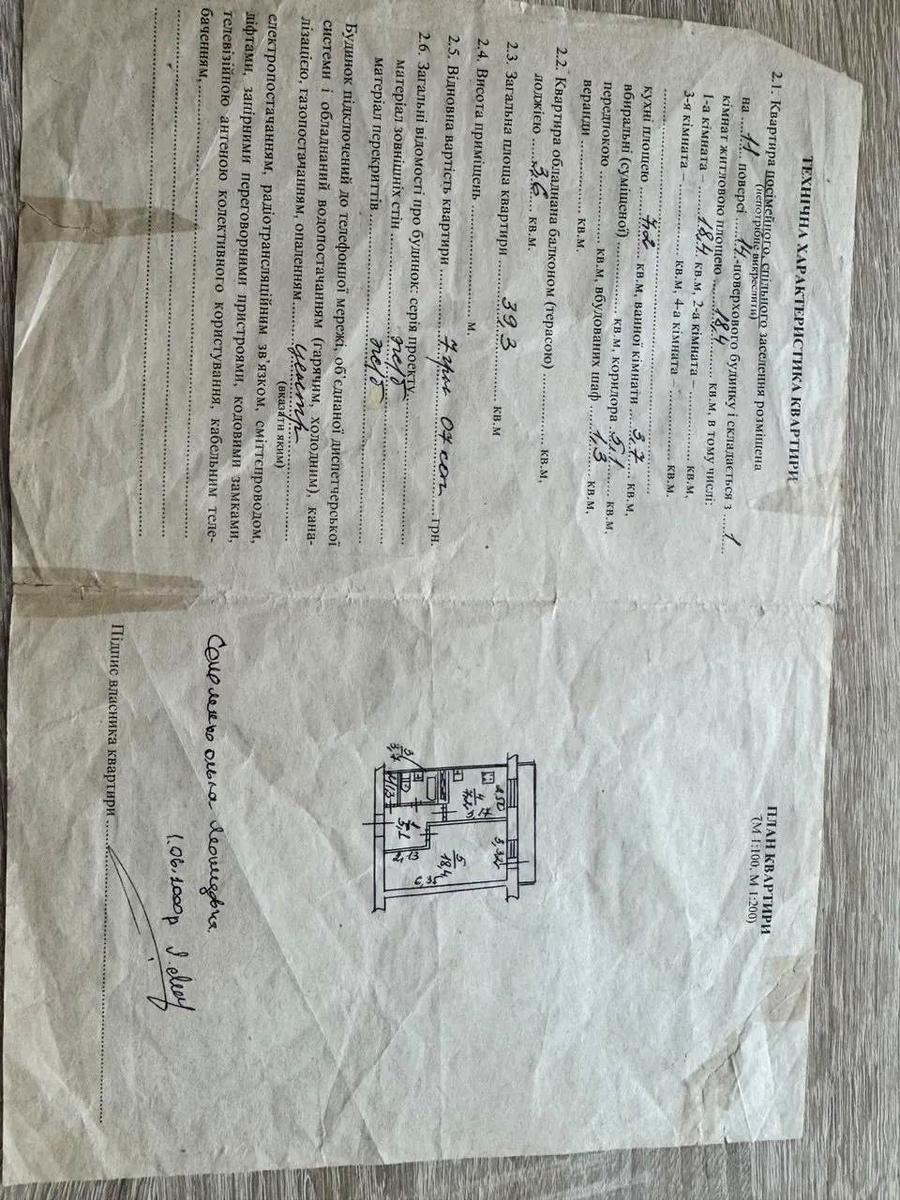 ТЕХНІЧНА ХАРАКТЕРИСТИКА КВАРТИРИ
2.1. Квартира посімейного, спільного заселення розміщена
(непотрібне викреслити)
на ....11.... поверсі ....14.. -поверхового будинку і складається з ....1
кімнат житловою площею ........18.4........ кв.м, в тому числі:
1-а кімната – ......18.4.. кв.м, 2-а кімната – ............ кв.м,
3-я кімната – ............ кв.м, 4-а кімната – ............ кв.м.
кухні площею ........7.2.... кв.м, ванної кімнати ..3.7.... кв.м,
вбиральні (суміщеної) ............ кв.м, коридора ..5.1.... кв.м
передпокою ............ кв.м, вбудованих шаф ....1.3.... кв.м,
веранди ............ кв.м.
2.2. Квартира обладнана балконом (терасою) ............ кв.м,
лоджією ......3.6.... кв.м.
2.3. Загальна площа квартири ........39.3........ кв.м
2.4. Висота приміщень ............ м.
2.5. Відновна вартість квартири ........7 грн 07 коп.. грн.
2.6. Загальні відомості про будинок: серія проекту............
матеріал зовнішніх стін ............
матеріал перекриттів ............
Будинок підключений до телефонної мережі, об'єднаної диспетчерської
системи і обладнаний водопостачанням (гарячим, холодним), кана-
лізацією, газопостачанням, опаленням ......центр............
(вказати яким)
електропостачанням, радіотрансляційним зв'язком, сміттєпроводом,
ліфтами, запірними переговорними пристроями, кодовими замками,
телевізійною антеною колективного користування, кабельним теле-
баченням,............
ПЛАН КВАРТИРИ
(М 1:100, М 1:200)
3
3,7
4
7.2
5
18,4
1
5,1
3,32
2,13
6,35
Ольга Леонидовна
1.06.1000р
Підпис власника квартири ............